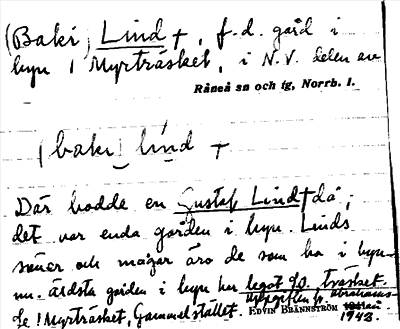 (Baki) Lind +, f.d. gård i
byn 1 Myrträsket, i N.V. delen av
Råneå sn och tg, Norrb. l.
(baki) lind +
Där bodde en Gustaf Lind då,
det var enda gården i byn. Linds
söner och mågar äro de som bo i byn
nu. Äldsta gården i byn har legat på
de 1 Myrträsket, Gammelstället. EDVIN BRÄNNSTRÖM
1943.